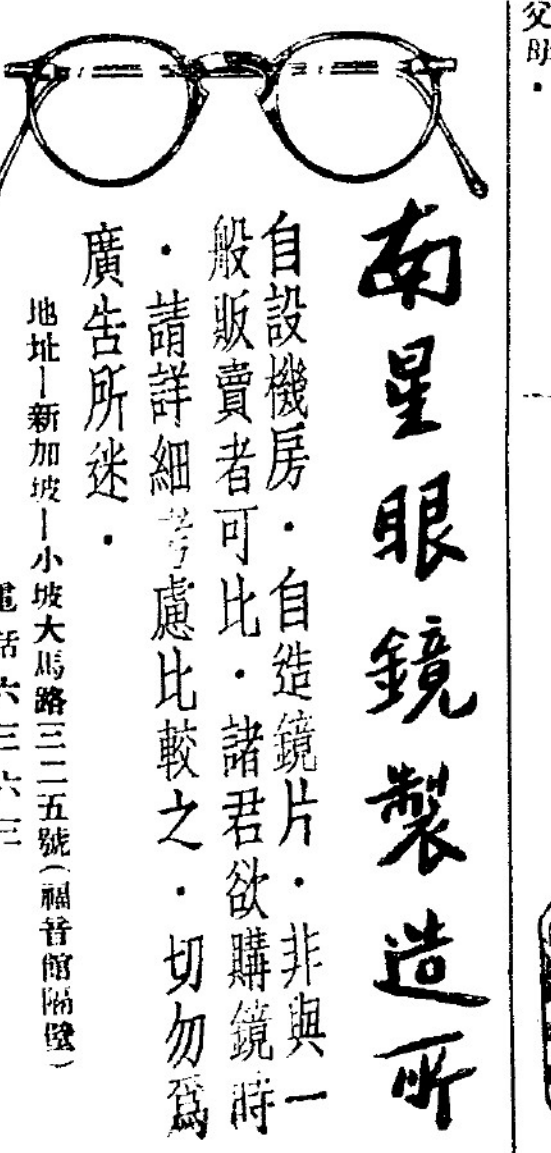 父母・
南星眼鏡製造所
自設機房・自造鏡片・非與一
般販賣者可比・諸君欲購鏡時
・請詳細考慮比較之・切勿爲
廣告所迷・
地址—新加坡—小坡大馬路三二五號(福音館隔壁)
電話六三六三